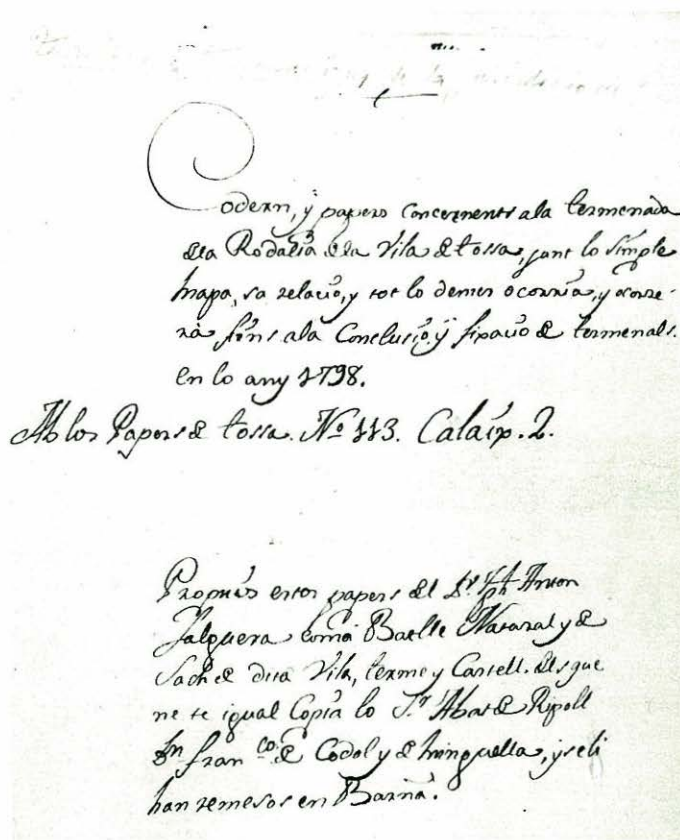 Codern, ÿ papers Concernents ala termenada
dela Rodalia dela Vila de tossa, junt lo simple
Mapa, sa relacio, y tot lo demes ocorria, y ocorre-
rà fins ala Conclusio, ÿ fixacio de termenals.
en lo any 1798.
Ab los Papers de tossa. Nº 113. Calaix. 2.
Propriis estos papers del Dr. Jph Anton
Falguera com á Batlle Natural y de
Sach de dita Vila, terme y Castell. dels que
ne te igual Copia lo Sr. Abat de Ripoll
Dn. Franco. de Codol y de Minguella, y se li
han remesos en Barna.